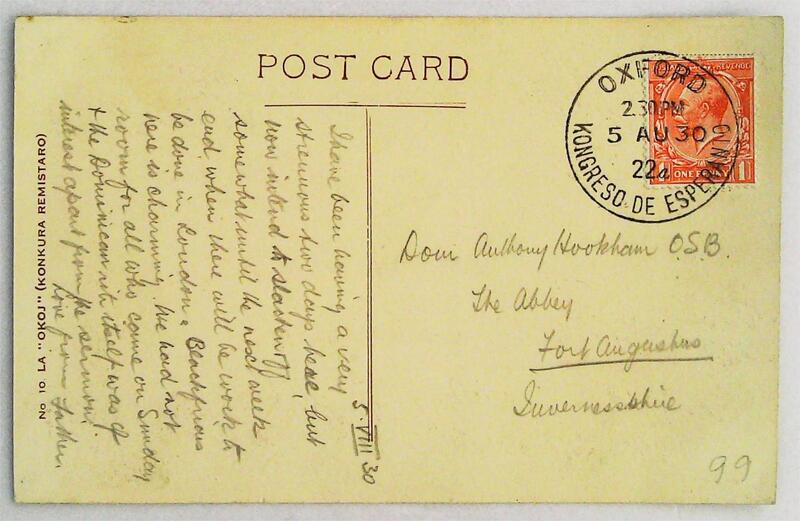 POST CARD
OXFORD
2.30 PM
5 AU 30
22A
KONGRESO DE ESPERANTO
POSTAGE REVENUE
ONE PENNY
1 1
Dom Anthony Hookham OSB.
The Abbey
Fort Augustus
Invernessshire
99
5. VIII 30
I have been having a very
strenuous two days here, but
now intend to slacken off
somewhat until the next week
end when there will be work to
be done in London.
here is charming. We had not
room for all who came on Sunday
& the Dominican rite itself was of
interest apart from the sermon!
Love from Father.
No 10. LA "OKOJ" (KONKURA REMISTARO)